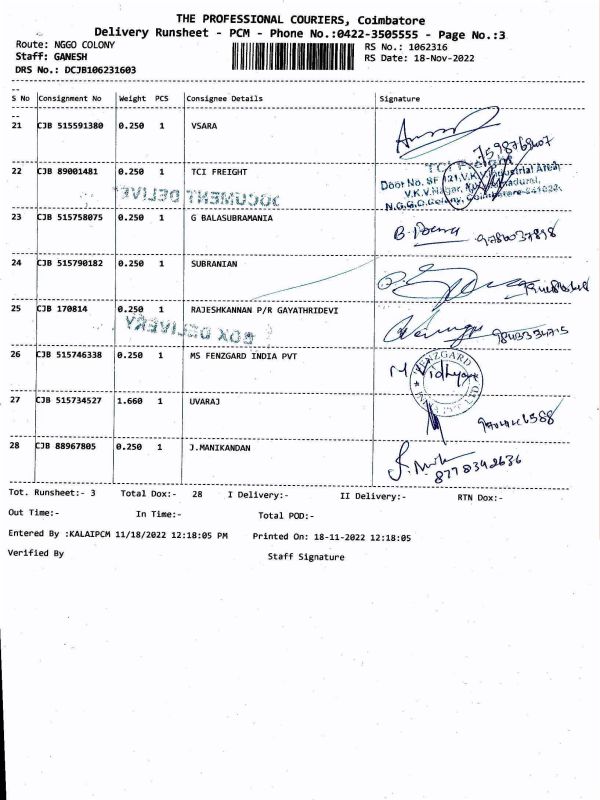 THE PROFESSIONAL COURIERS, Coimbatore
Delivery Runsheet - PCM - Phone No.:0422-3505555 - Page No.:3
Route: NGGO COLONY RS No.: 1062316
Staff: GANESH RS Date: 18-Nov-2022
DRS No.: DCJB106231603
S No Consignment No Weight PCS Consignee Details Signature
21 CJB 515591380 0.250 1 VSARA
22 CJB 89001481 0.250 1 TCI FREIGHT
TCI Freight
Door No. SF 121, V.K.V. Industrial Area
V.K.V. Nagar,
N.G.G.O.Colony, Coimbatore-641022.
DOCUMENT DELIVE
23 CJB 515758075 0.250 1 G BALASUBRAMANIA
24 CJB 515790182 0.250 1 SUBRANIAN
25 CJB 170814 0.250 1 RAJESHKANNAN P/R GAYATHRIDEVI
BOX DELIVERY
26 CJB 515746338 0.250 1 MS FENZGARD INDIA PVT
M Vidhya
FENZGARD
27 CJB 515734527 1.660 1 UVARAJ
28 CJB 88967805 0.250 1 J.MANIKANDAN
8778342636
Tot. Runsheet:- 3 Total Dox:- 28 I Delivery:- II Delivery:- RTN Dox:-
Out Time:- In Time:- Total POD:-
Entered By :KALAIPCM 11/18/2022 12:18:05 PM Printed On: 18-11-2022 12:18:05
Verified By Staff Signature